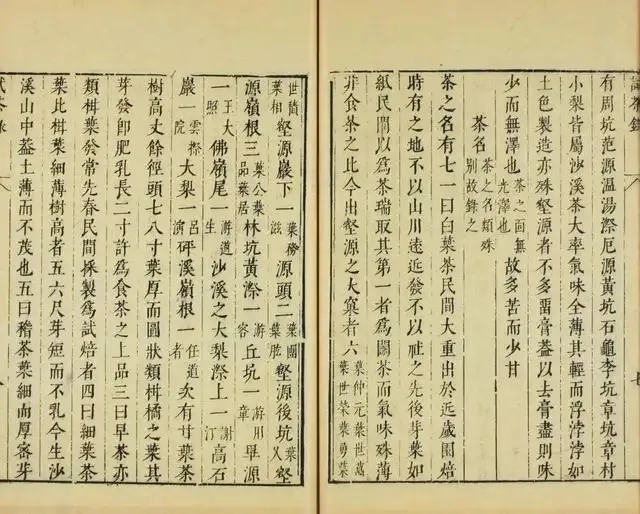 有周坑范源温湯漈厄源黃坑石龜李坑章坑章村
小梨皆屬沙溪茶大率氣味全薄其輕而浮浡浡如
土色製造亦殊壑源者不多畱膏葢以去膏盡則味
少而無澤也茶之面無光澤也故多苦而少甘
茶名茶之名類殊别故錄之
茶之名有七一曰白葉茶民間大重出於近歲園焙
時有之地不以山川遠近發不以社之先後芽葉如
紙民間以為茶瑞取其第一者為鬭茶而氣味殊薄
非食茶之比今出壑源之大窠者六葉仲元葉世萬葉世榮葉勇葉
世積葉相壑源巖下一葉務滋源頭二葉團葉肱壑源後坑葉久壑
源嶺根三葉公葉品葉居林坑黃漈一游容丘坑一游用章畢源
一王大照佛嶺尾一游道生沙溪之大梨漈上一謝汀高石
巖一雲擦院大梨一呂演砰溪嶺根一任道者次有甘葉茶
樹高丈餘徑頭七八寸葉厚而圓狀類柑橘之葉其
芽發即肥乳長二寸許為食茶之上品三曰早茶亦
類柑葉發常先春民間採製為試焙者四曰細葉茶
葉比柑葉細薄樹高者五六尺芽短而不乳今生沙
溪山中葢土薄而不茂也五曰稽茶葉細而厚密芽